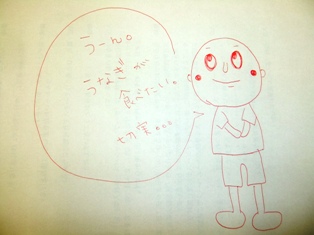 うーん。
うなぎが
食べたい。
切実。。。